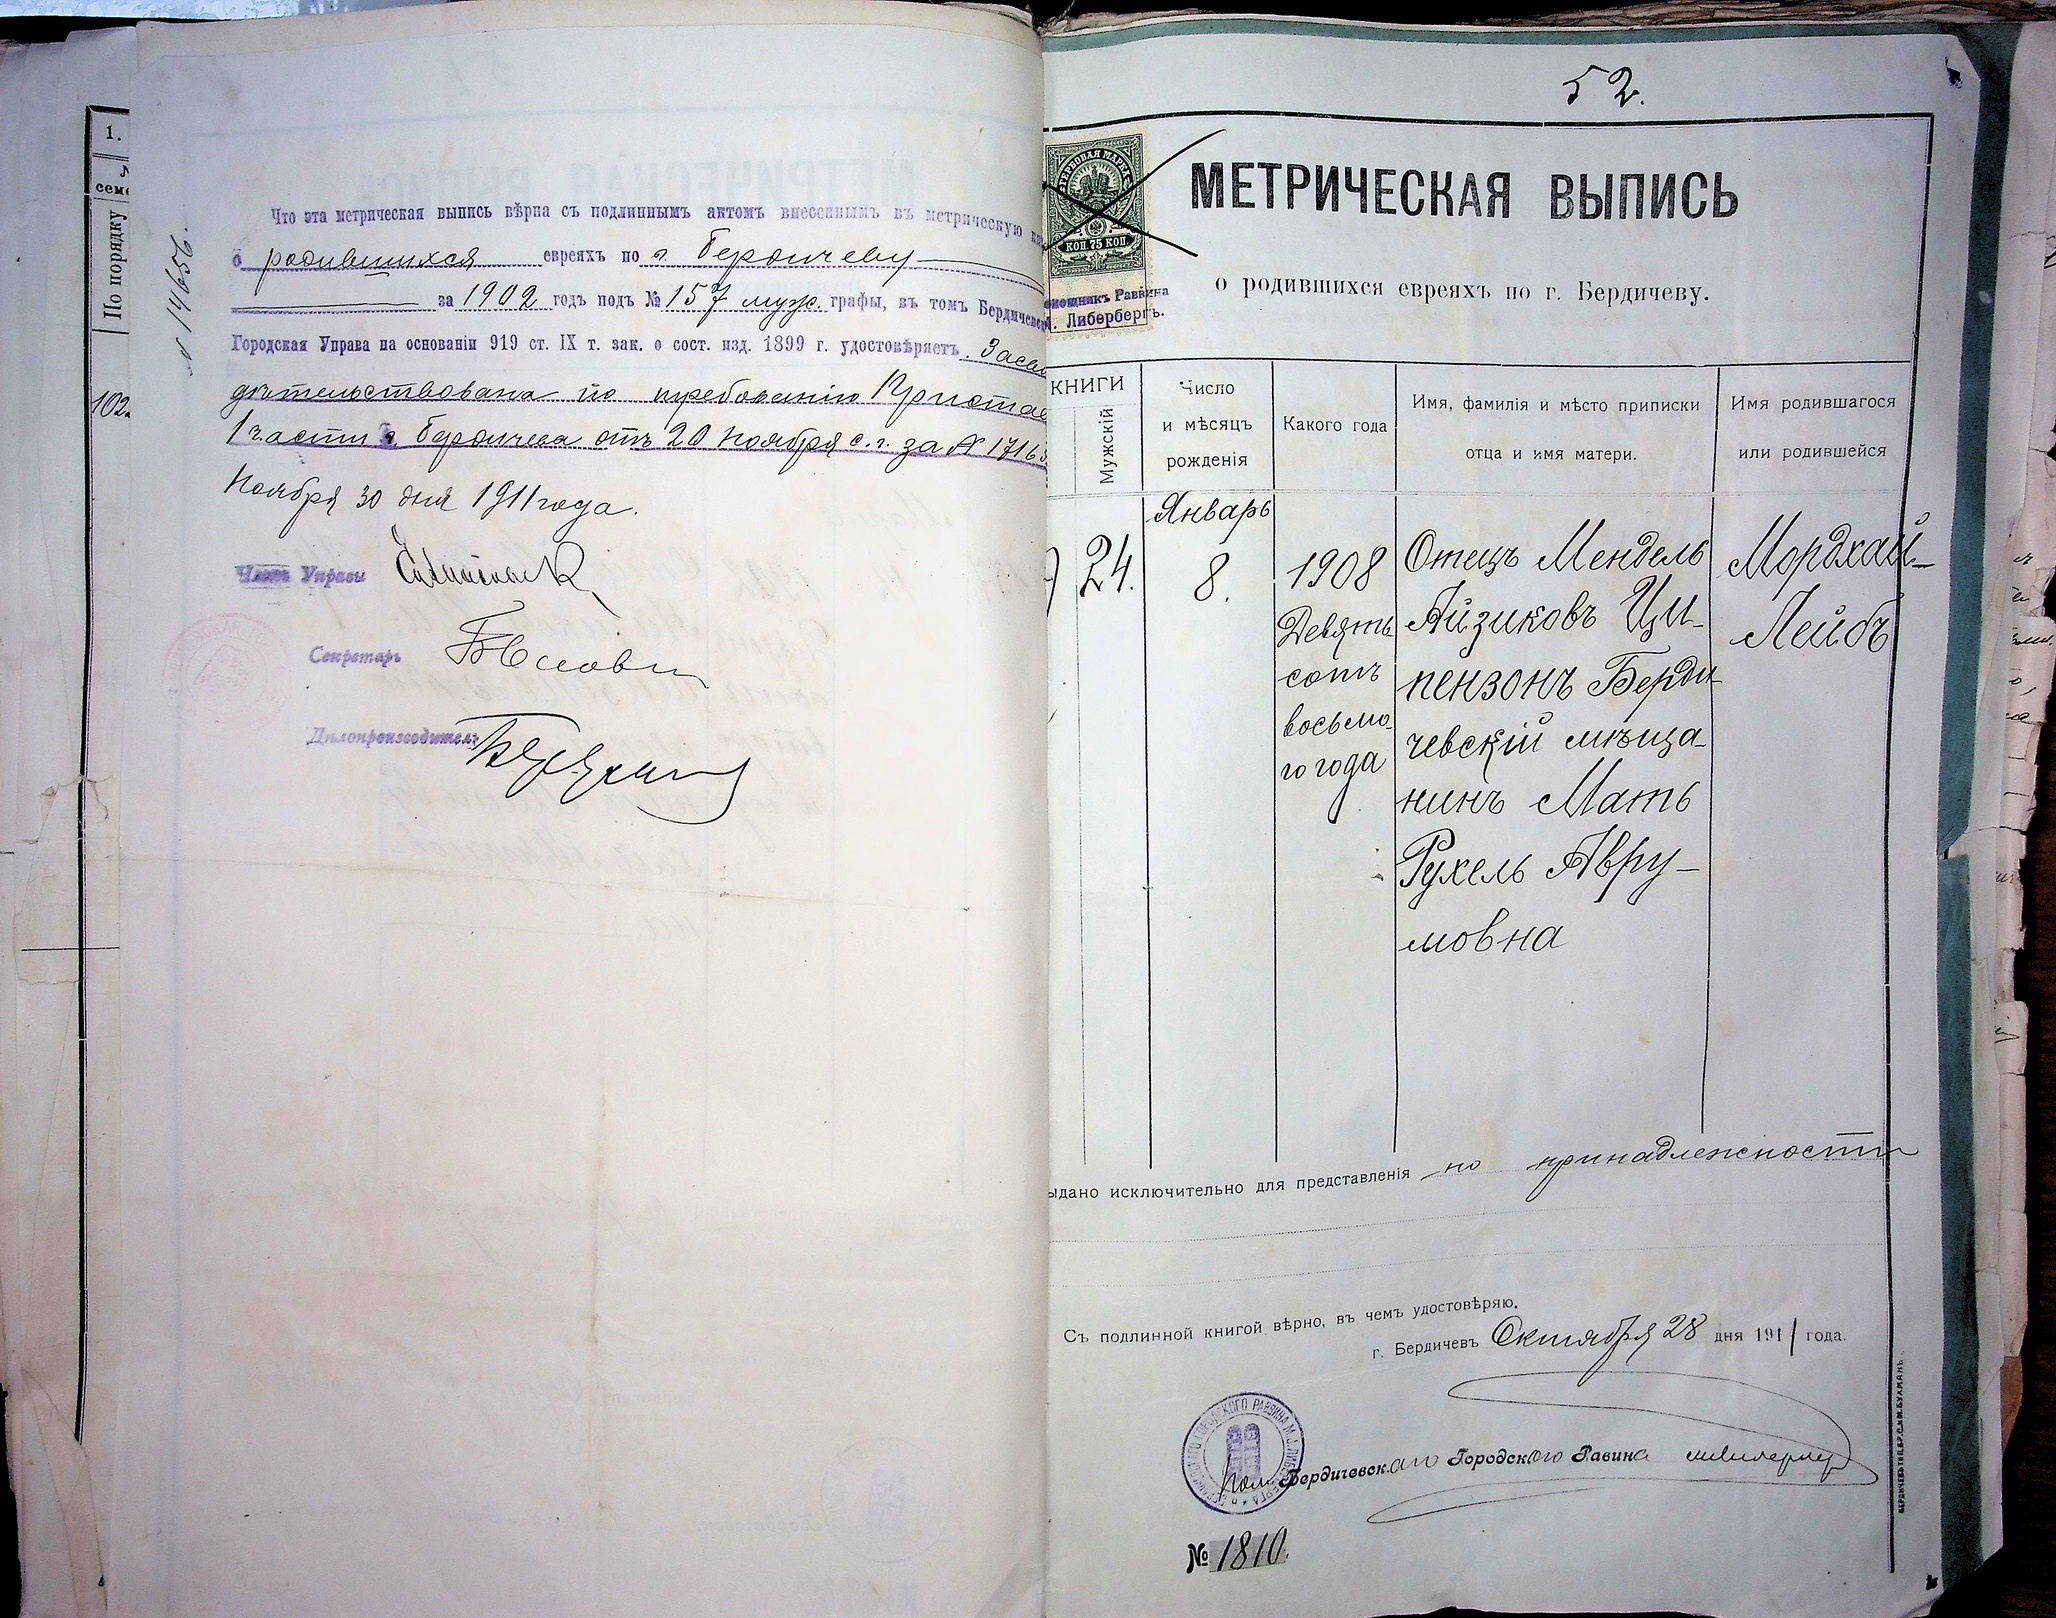 1.
семе
По порядку
102
№ 14656.
Что эта метрическая выпись вѣрна съ подлиннымъ актомъ внесеннымъ въ метрическую
о родившихся евреяхъ по г. Бердичеву
за 1902 годъ подъ № 157 муж. графы, въ томъ Бердичевс
Городская Управа на основаніи 919 ст. IX т. зак. о сост. изд. 1899 г. удостовѣряетъ. Засви
дѣтельствована по требованію Пристава
1 части г. Бердичева отъ 20 Ноября с. г. за № 1716
Ноября 30 дня 1911 года.
Членъ Управы
Секретарь
Дѣлопроизводитель
52.
ГЕРБОВАЯ МАРКА
КОП. 75 КОП.
Помощникъ Раввина
Либербергъ.
МЕТРИЧЕСКАЯ ВЫПИСЬ
о родившихся евреяхъ по г. Бердичеву.
КНИГИ
Мужскій
Число
и мѣсяцъ
рожденія
Какого года
Имя, фамилія и мѣсто приписки
отца и имя матери.
Имя родившагося
или родившейся
Январь
24.
8.
1908
Девять
сотъ
восьмо-
го года
Отецъ Мендель
Айзиковъ Ци-
пензонъ Берди-
чевскій мѣща-
нинъ Мать
Рухель Авру-
мовна
Мордхай-
Лейбъ
ыдано исключительно для представленія по принадлежности
Съ подлинной книгой вѣрно, въ чемъ удостовѣряю.
г. Бердичевъ Октября 28 дня 1911 года.
Пом. Бердичевскаго Городского Равина
№ 1810.